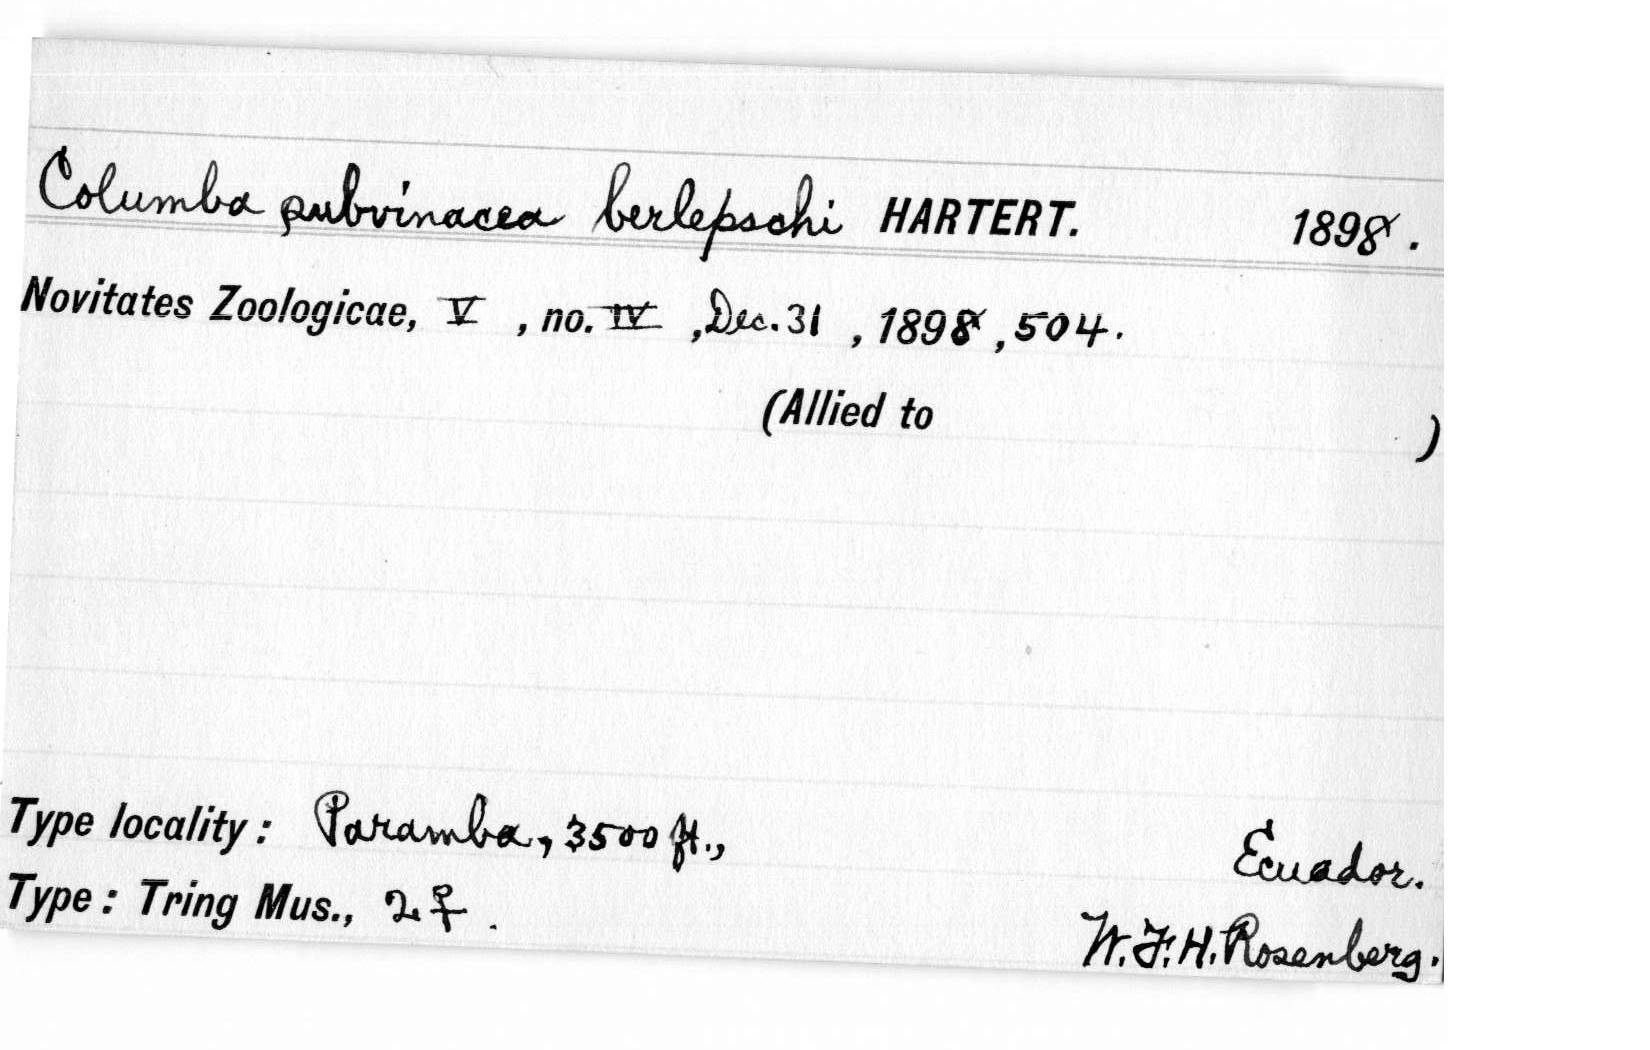 Columba subvinacea berlepschi HARTERT. 1898.
Novitates Zoologicae, V , no. IV , Dec. 31 , 1898 , 504.
(Allied to )
Type locality: Paramba, 3500 ft., Ecuador.
Type: Tring Mus., 2♀. W. F. H. Rosenberg.